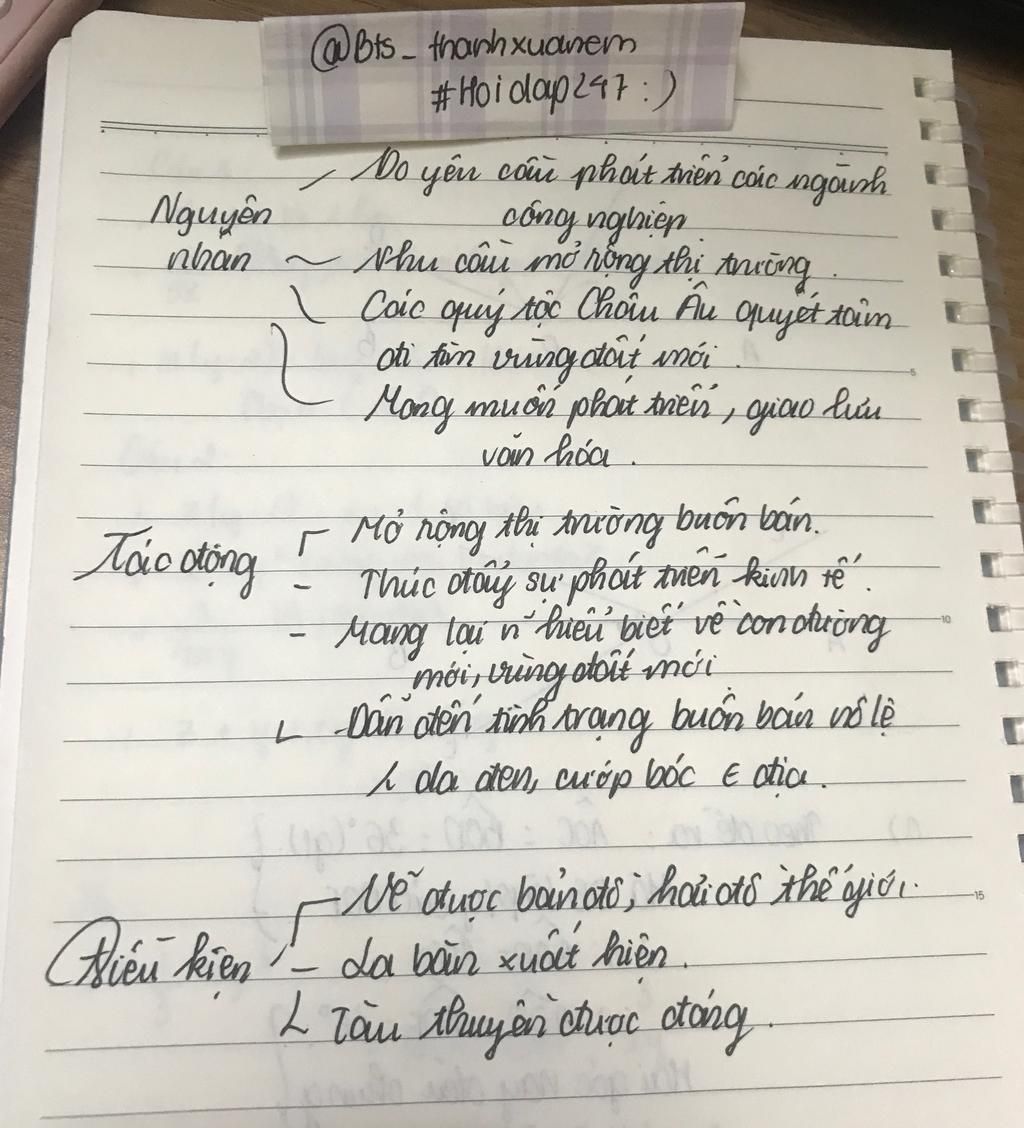 @Bts_thanhxuanem
#Hoidap247 :)
Do yêu cầu phát triển các ngành
Nguyên công nghiệp
nhân ~ Nhu cầu mở rộng thị trường.
Các quý tộc Châu Âu quyết tâm
đi tìm vùng đất mới.
Mong muốn phát triển, giao lưu
văn hóa.
Mở rộng thị trường buôn bán.
Tác động
- Thúc đẩy sự phát triển kinh tế.
- Mang lại n~ hiểu biết về con đường
mới, vùng đất mới
Dẫn đến tình trạng buôn bán nô lệ
da đen, cướp bóc € địa.
Vẽ được bản đồ, hải đồ thế giới.
Điều kiện - La bàn xuất hiện.
Tàu thuyền được đóng.